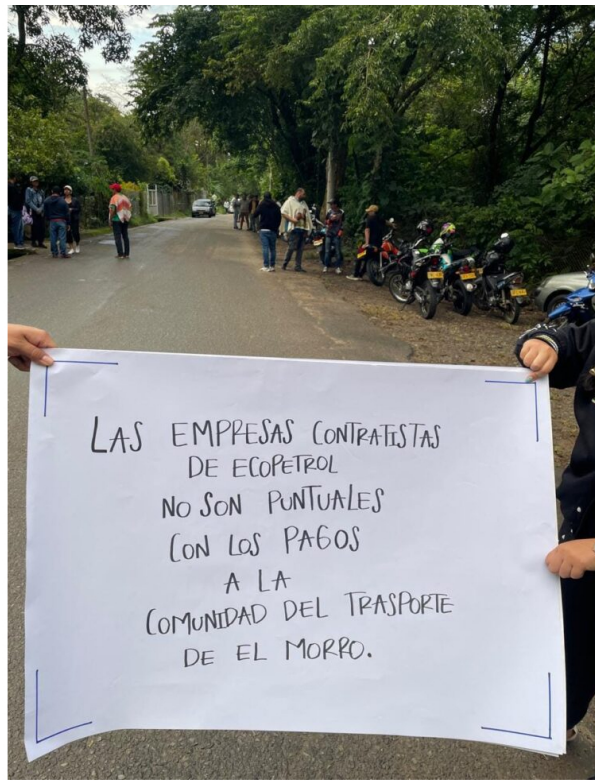 LAS EMPRESAS CONTRATISTAS
DE ECOPETROL
NO SON PUNTUALES
CON LOS PAGOS
A LA
COMUNIDAD DEL TRASPORTE
DE EL MORRO.